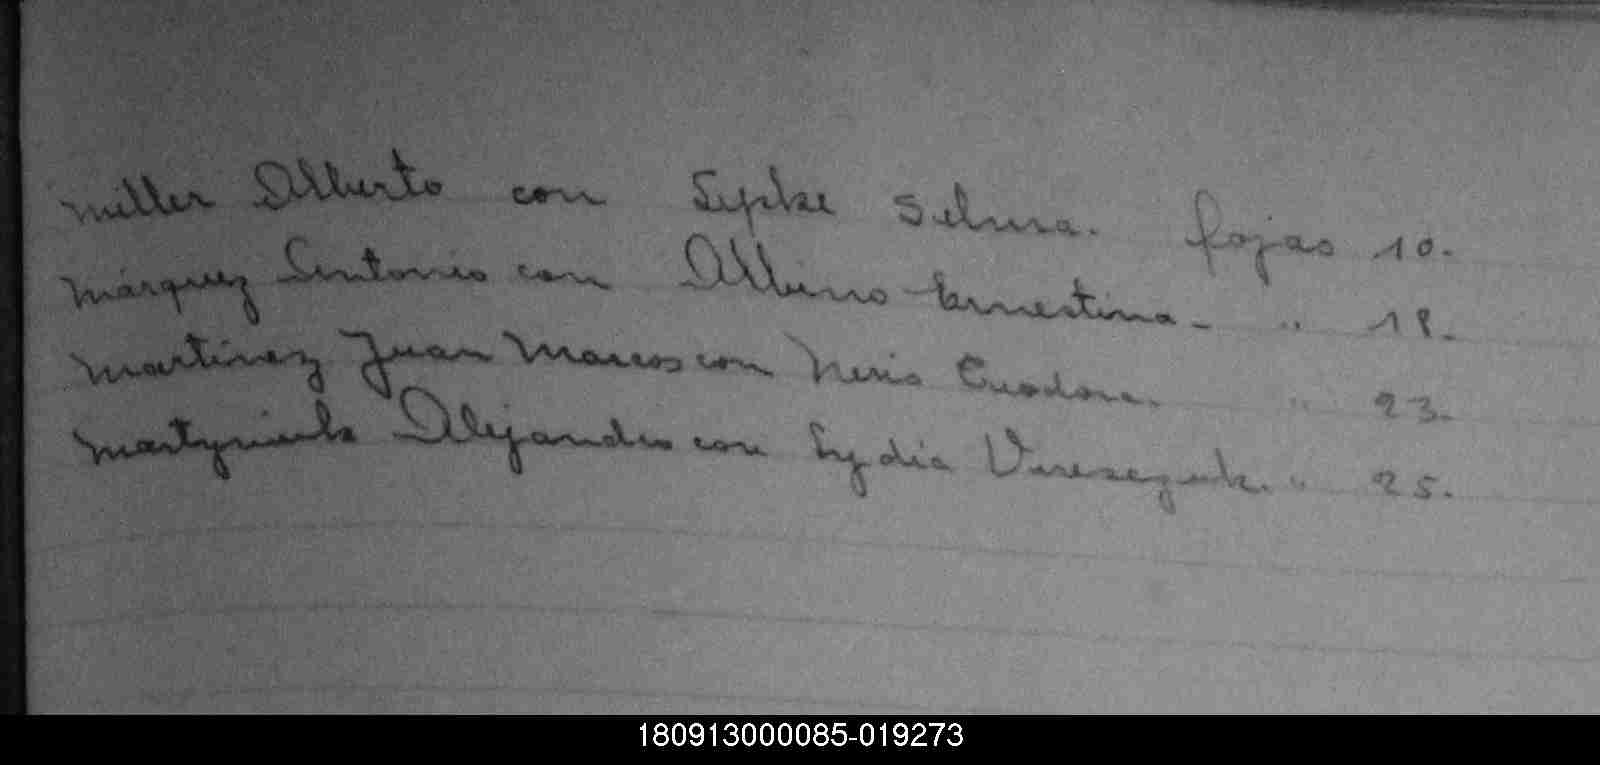 Miller Alberto con Lypke Selma. fojas 10.
Márquez Antonio con Albino Ernestina - " 18.
Martinez Juan Marcos con Neris Teodora. " 23.
Martyniuk Alejandro con Lydia " 25.
180913000085-019273